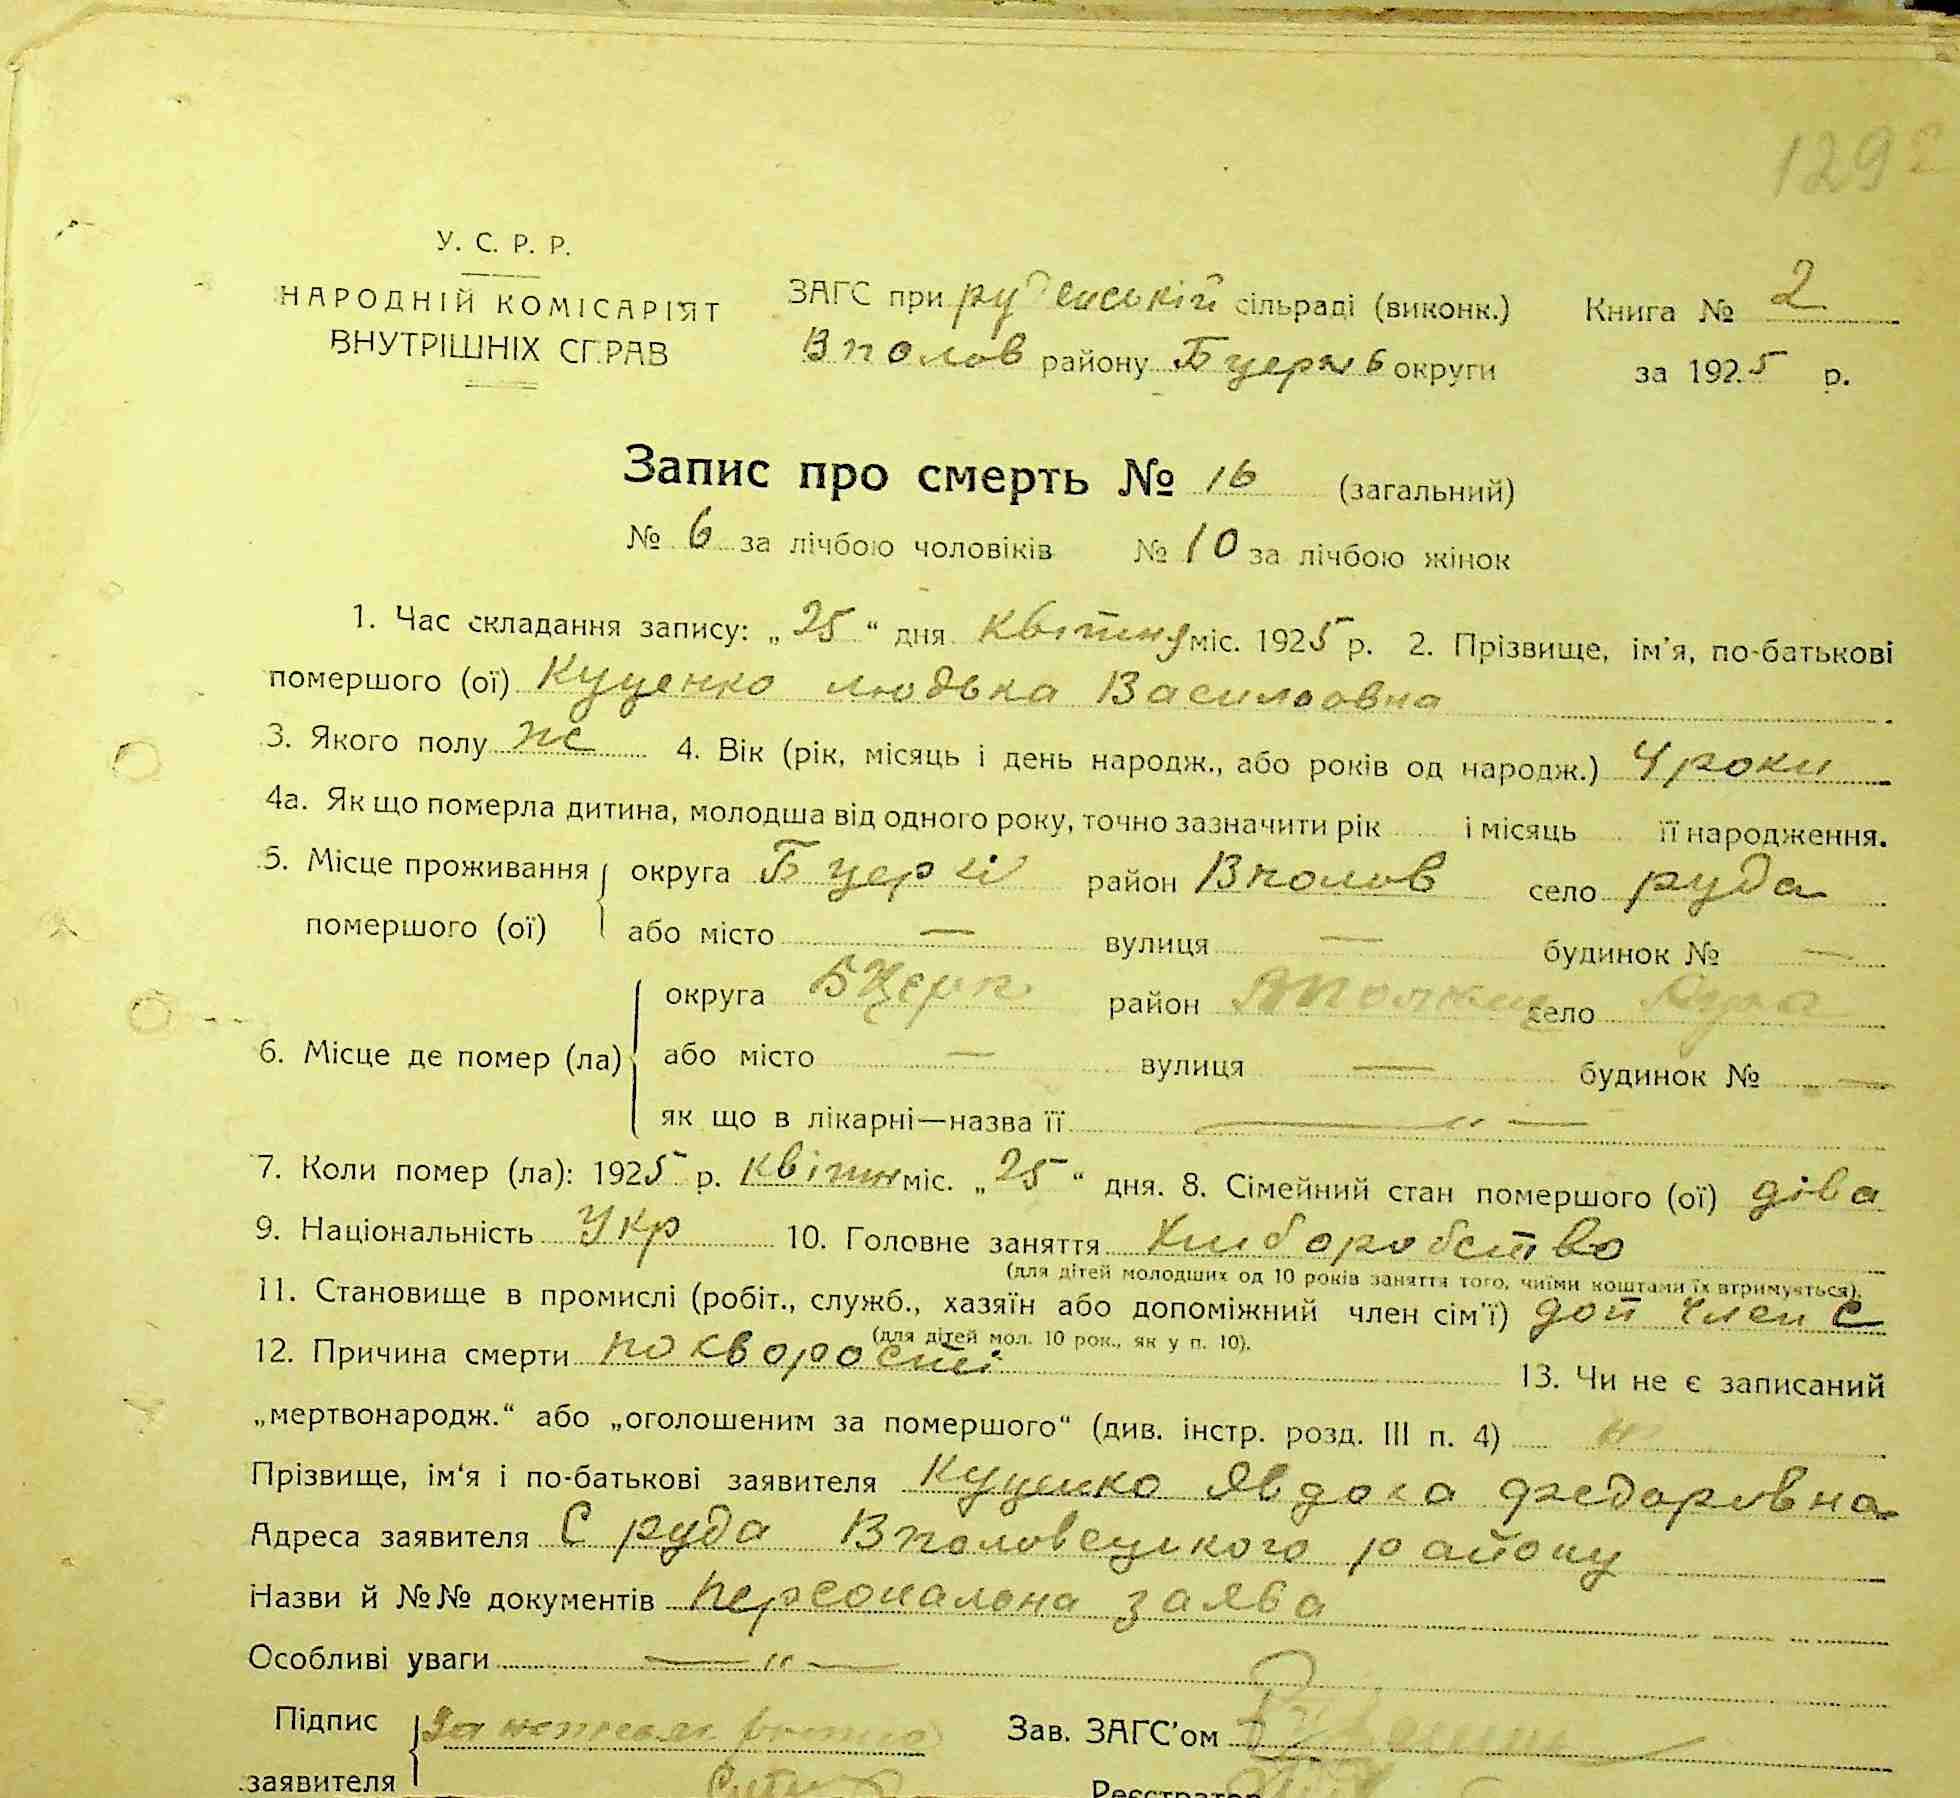 129
У. С. Р. Р.
НАРОДНІЙ КОМІСАРІЯТ
ВНУТРІШНІХ СПРАВ
ЗАГС при руденській сільраді (виконк.)
Вполов району Бцерк округи
Книга № 2
за 1925 р.
Запис про смерть № 16 (загальний)
№ 6 за лічбою чоловіків № 10 за лічбою жінок
1. Час складання запису: „25“ дня квітня міс. 1925 р. 2. Прізвище, ім’я, по-батькові
помершого (ої) Куценко людька Василовна
3. Якого полу ж 4. Вік (рік, місяць і день народж., або років од народж.) 4 роки
4а. Як що померла дитина, молодша від одного року, точно зазначити рік і місяць її народження.
5. Місце проживання округа Бцер район Вполов село руда
помершого (ої) або місто — вулиця — будинок № —
округа БЦерк район село Руда
6. Місце де помер (ла) або місто — вулиця — будинок № —
як що в лікарні—назва її — „ —
7. Коли помер (ла): 1925 р. квітня міс. „25“ дня. 8. Сімейний стан помершого (ої) діва
9. Національність Укр 10. Головне заняття Хліборобство
(для дітей молодших од 10 років заняття того, чиїми коштами їх втримується).
11. Становище в промислі (робіт., служб., хазяїн або допоміжний член сім’ї) доп член с
(для дітей мол. 10 рок., як у п. 10).
12. Причина смерти по кворості 13. Чи не є записаний
„мертвонародж.“ або „оголошеним за помершого“ (див. інстр. розд. III п. 4)
Прізвище, ім‘я і по-батькові заявителя Куценко Явдоха федаровна
Адреса заявителя С руда Вполовецького району
Назви й №№ документів персоналона заява
Особливі уваги — „ —
Підпис За
заявителя
Зав. ЗАГС’ом
Реєстратор